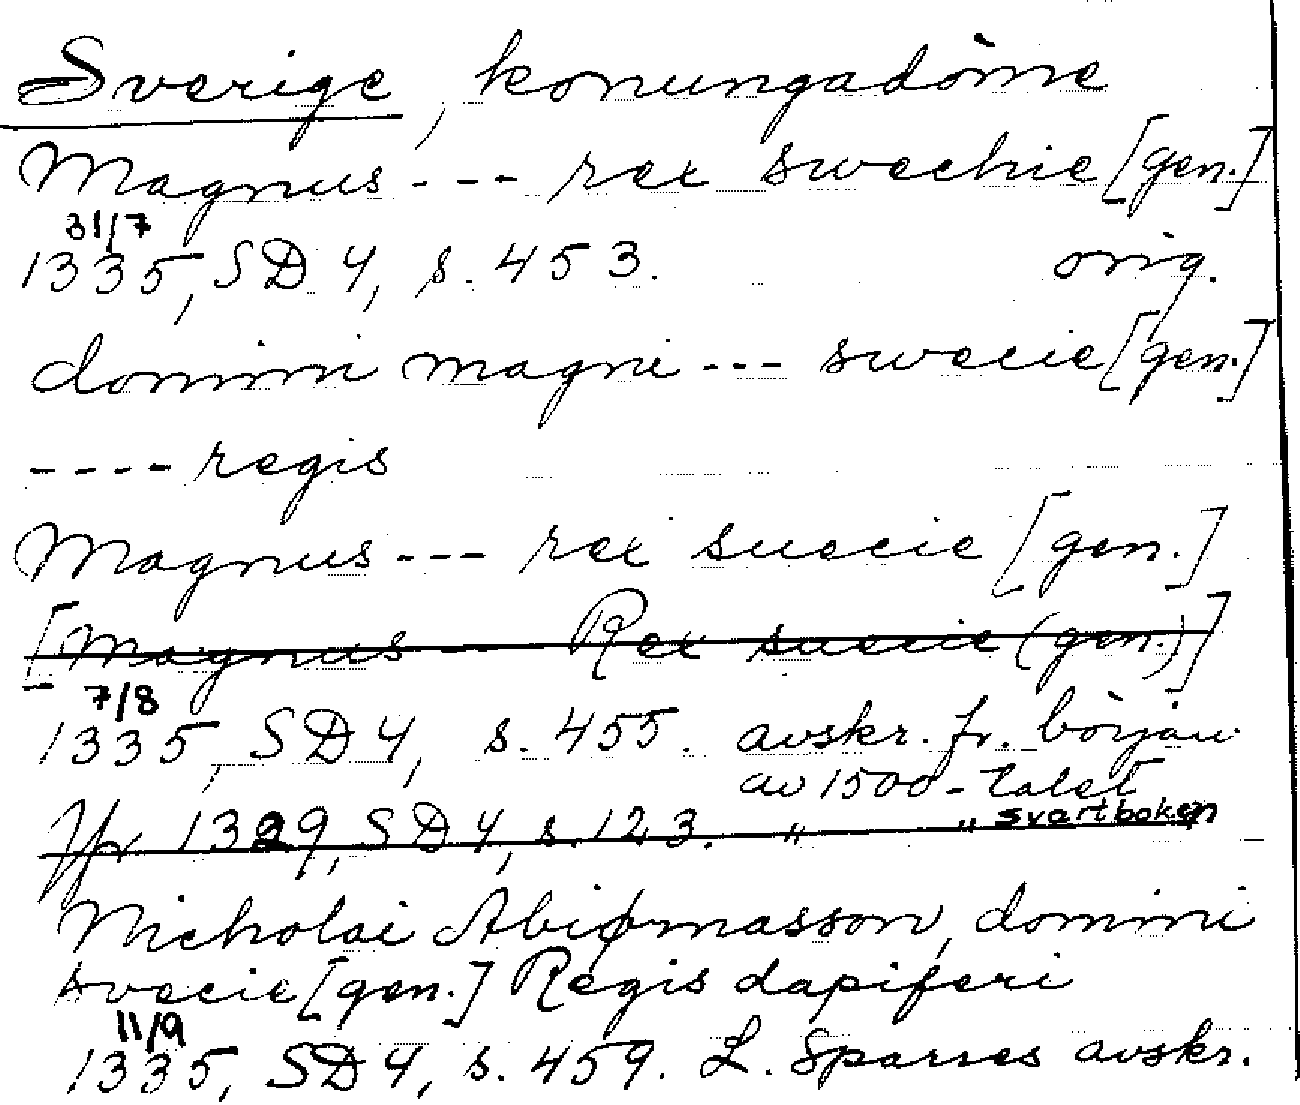 Sverige, konungadöme
Magnus --- rex swechie [gen.]
31/7
1335, SD 4, s. 453. orig.
domini magni --- swecie [gen.]
---- regis
Magnus --- rex suecie [gen.]
[Magnus --- Rex suecie (gen.)]
7/8
1335, SD 4, s. 455. avskr. fr. början
av 1500-talet
Jfr 1329, SD 4, s. 123. " " svartboken
Nicholai Abiørnasson, domini
svecie [gen.] Regis dapiferi
11/9
1335, SD 4, s. 459. L. Sparres avskr.